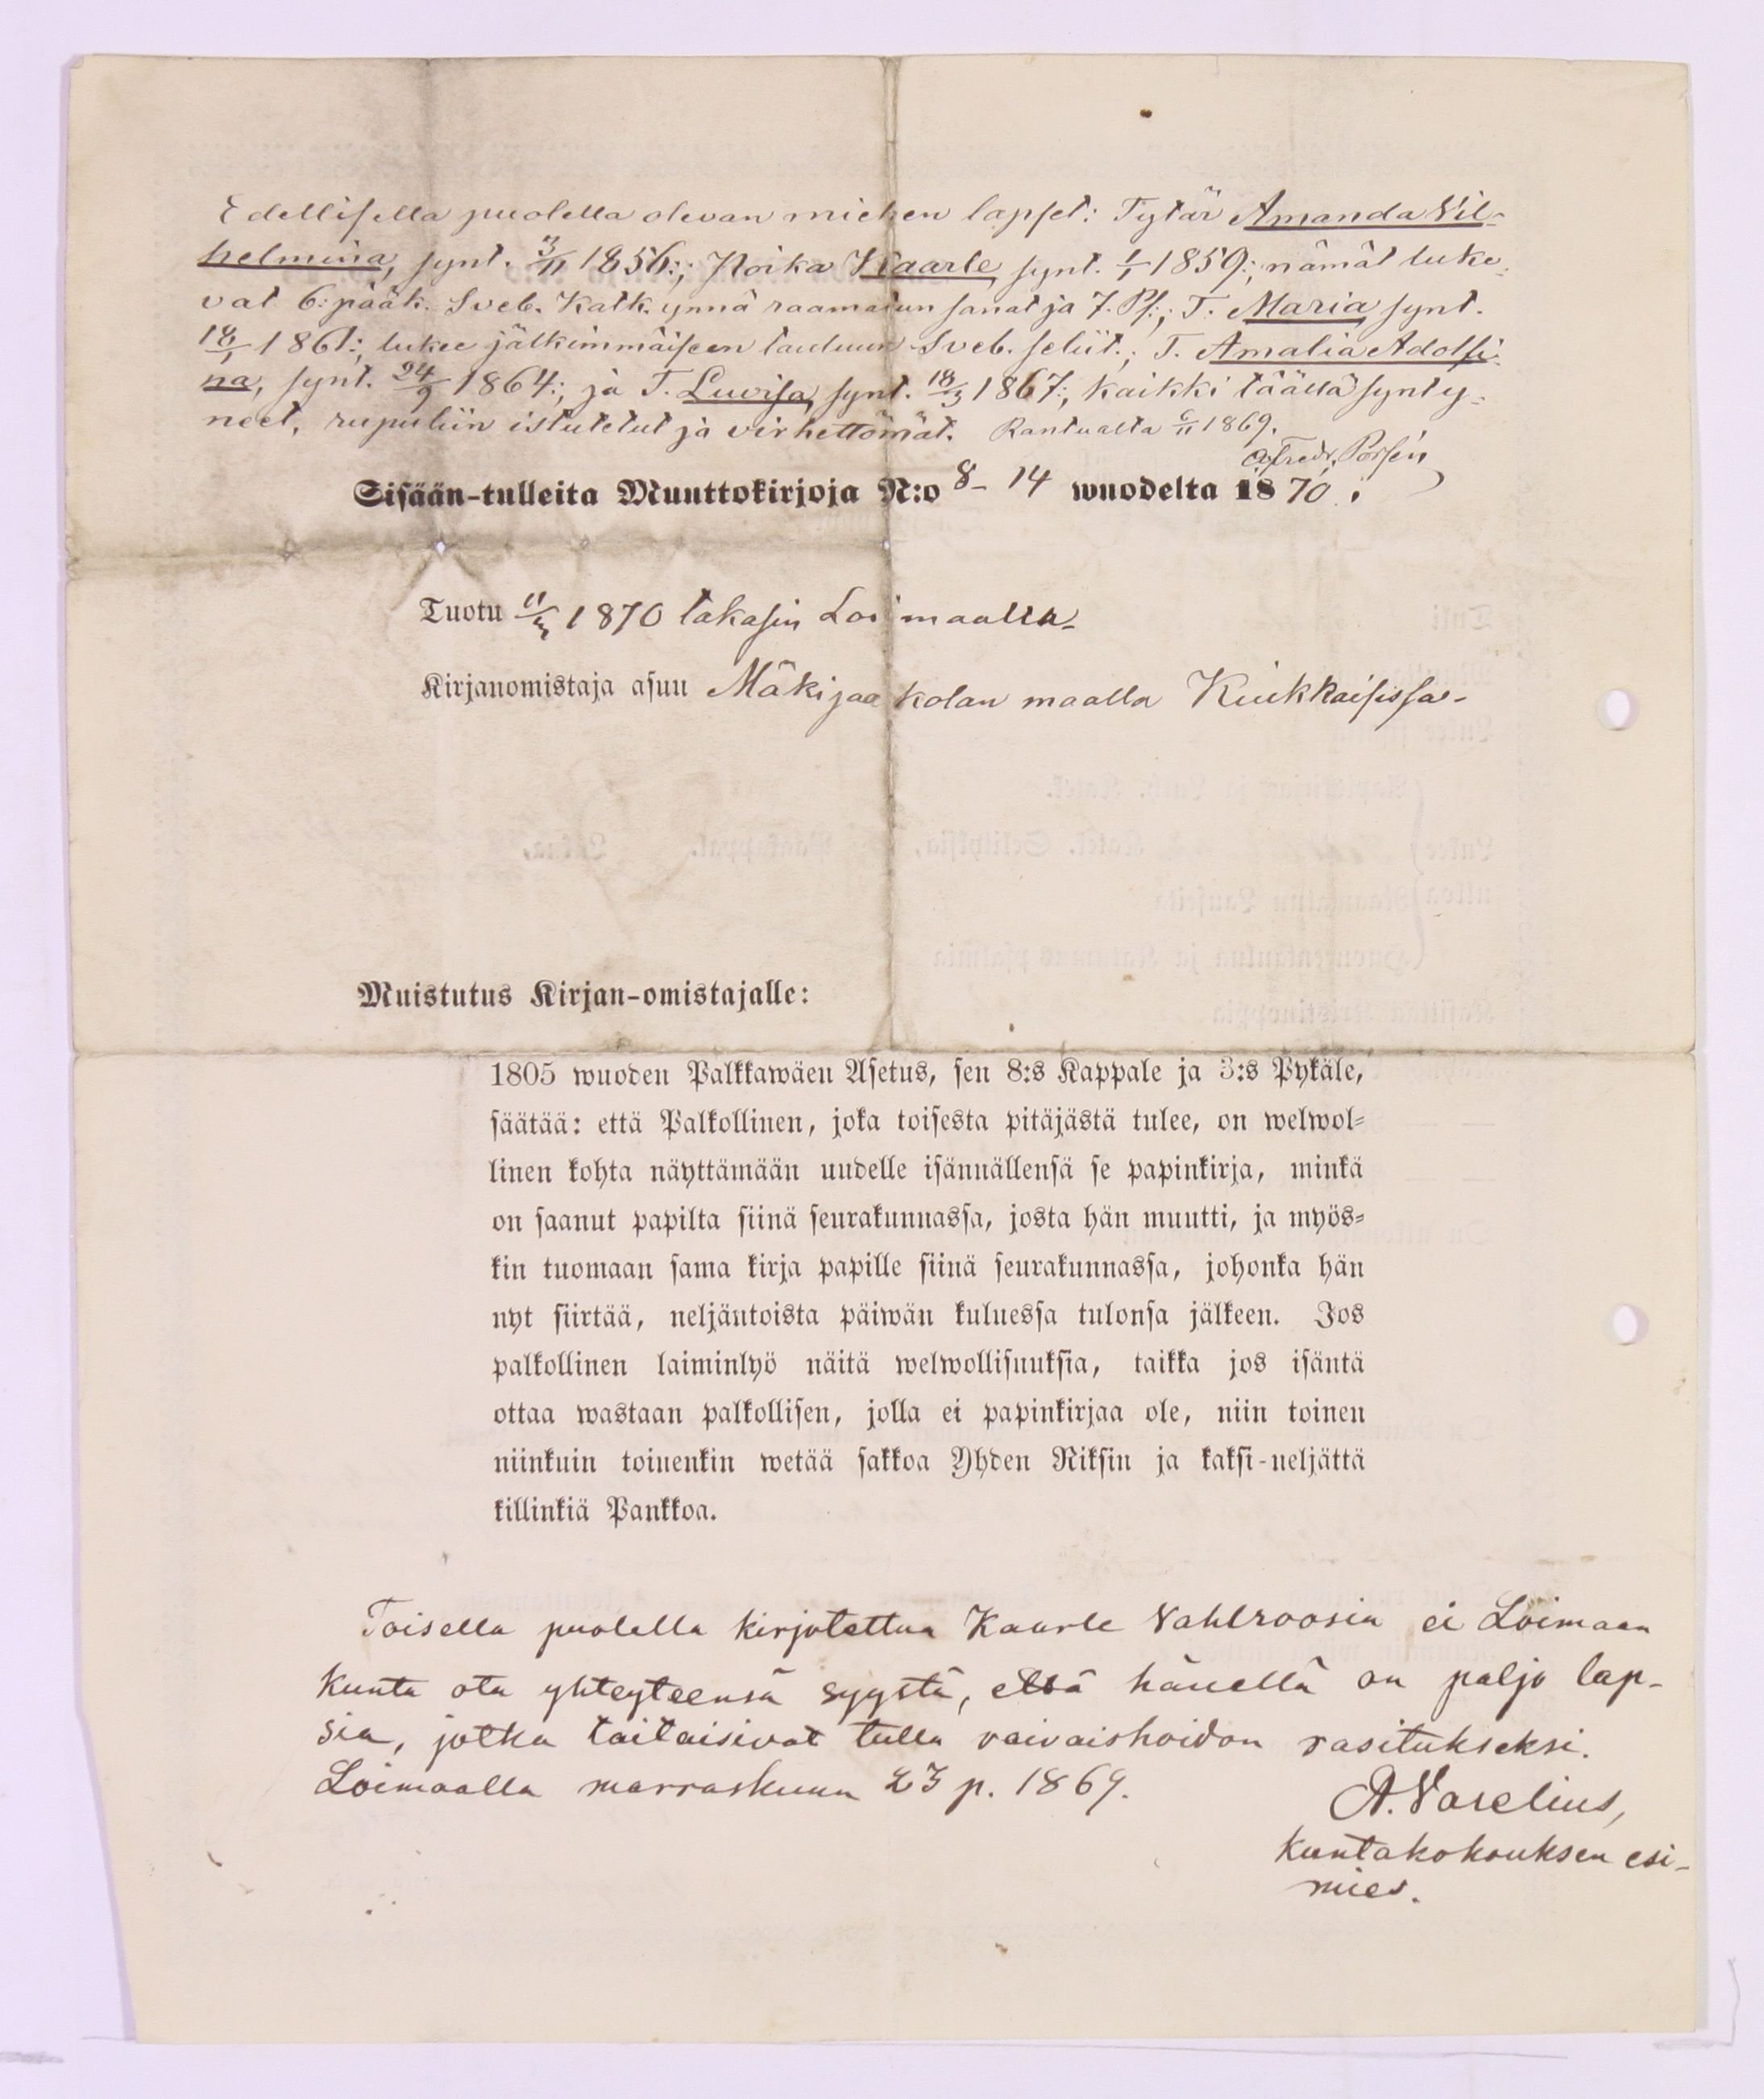 Edellisella puolella olevan miehen lapset: Tytär Amanda Vil-
helmina, synt. 3/11 1856:; Poika Kaarle, synt. 1/1 1859:; nämät luke-
vat 6: pääk. Sveb. Katk. ynnä raamatun sanat ja 7. Ps:; T. Maria synt.
18/1 1861:; lukee jälkimmäiseen tauluun Sveb. seliit.; T. Amalia Adolfi-
na, synt. 24/9 1864:; ja T. Luvisa, synt. 18/3 1867:; kaikki täällä synty-
neet, rupuliin istutetut ja virhettömät. 6/11 1869.
Sisään-tulleita Muuttokirjoja N:o 8-14 wuodelta 1870.
Tuotu 1870 takasin Loimaalta
Kirjanomistaja asuu Mäkijaakolan maalla Kiukkaisissa-
Muistutus Kirjan-omistajalle:
1805 wuoden Palkkawäen Asetus, sen 8:s Kappale ja 3:s Pykäle,
säätää: että Palkollinen, joka toisesta pitäjästä tulee, on welwol-
linen kohta näyttämään uudelle isännällensä se papinkirja, minkä
on saanut papilta siinä seurakunnassa, josta hän muutti, ja myös-
kin tuomaan sama kirja papille siinä seurakunnassa, johonka hän
nyt siirtää, neljäntoista päiwän kuluessa tulonsa jälkeen. Jos
palkollinen laiminlyö näitä welwollisuuksia, taikka jos isäntä
ottaa wastaan palkollisen, jolla ei papinkirjaa ole, niin toinen
niinkuin toinenkin wetää sakkoa Yhden Riksin ja kaksi-neljättä
killinkiä Pankkoa.
Toisella puolella kirjotettua Kaarle Vahlroosia ei Loimaan
kunta ota yhteyteensä syystä, että hänellä on paljo lap-
sia, jotka taitaisivat tulla vaivaishoidon rasitukseksi.
Loimaalla marraskuun 23 p. 1869.
A. Varelius,
kuntakokouksen esi-
mies.